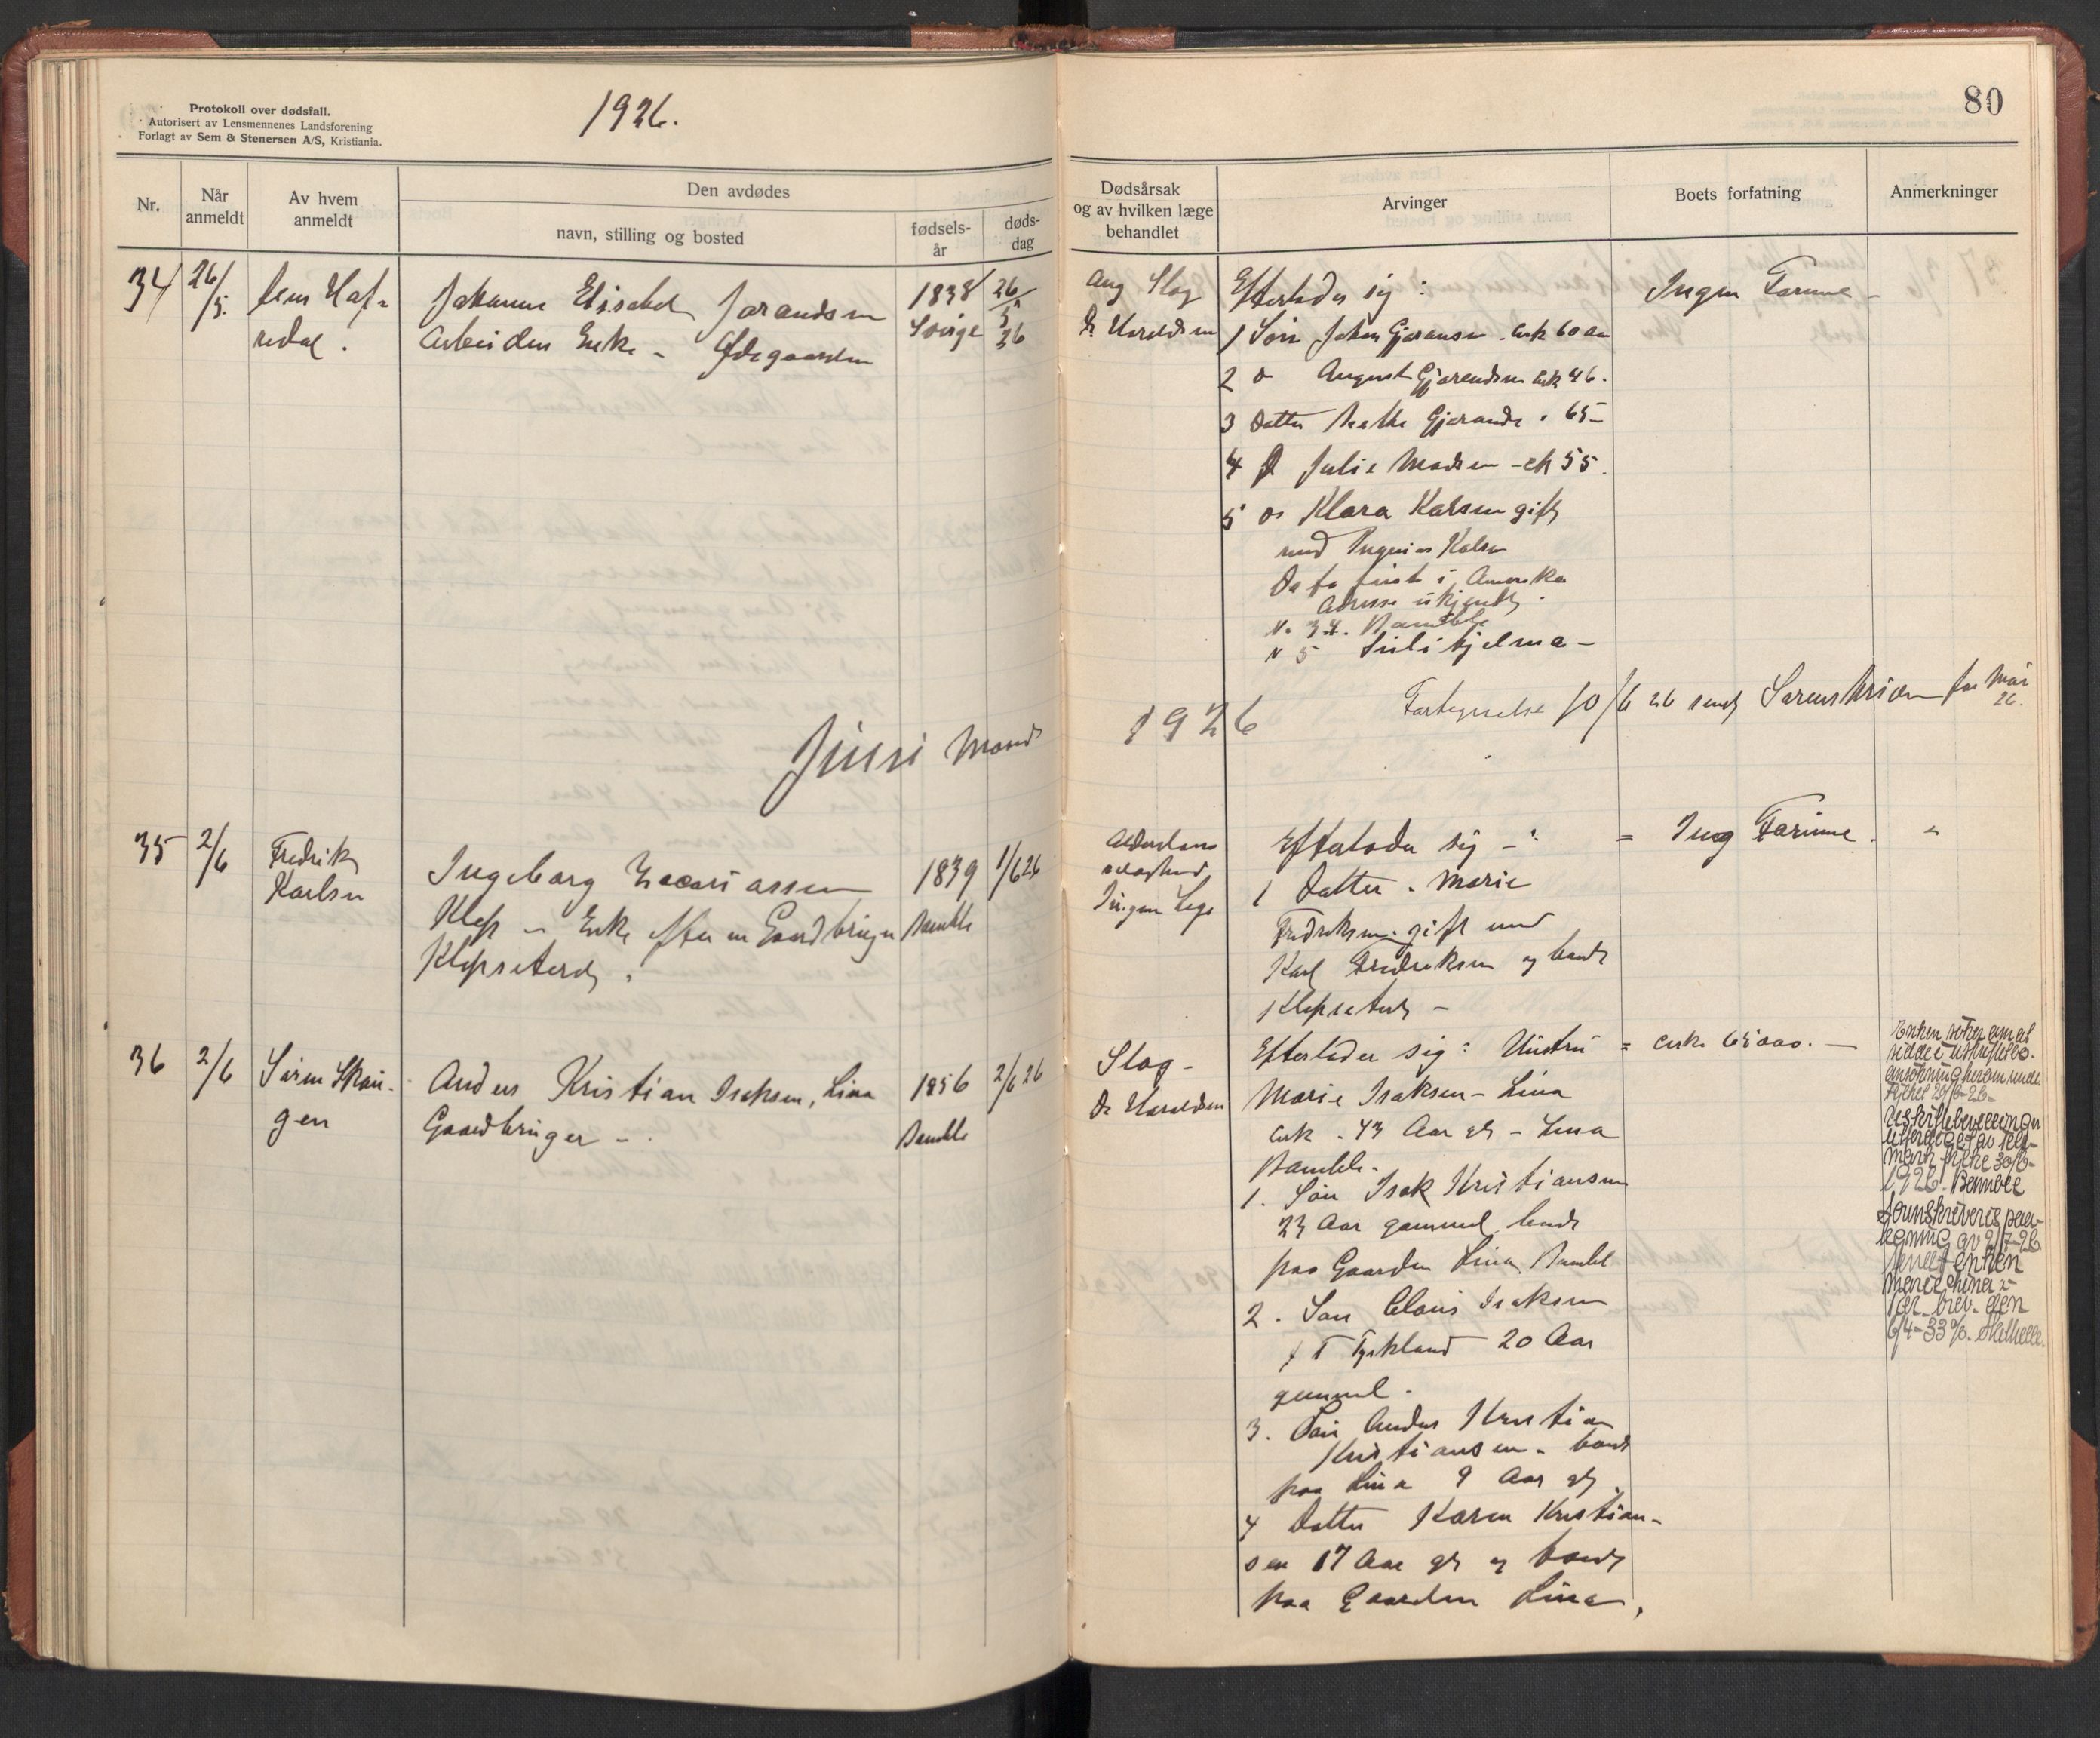 Protokoll over dødsfall.
Autorisert av Lensmennenes Landsforening
Forlagt av Sem & Stenersen A/S, Kristiania.
1926.
80
Nr.
Når anmeldt
Av hvem anmeldt
Den avdødes
navn, stilling og bosted
fødsels-år
døds-dag
Dødsårsak
og av hvilken læge
behandlet
Arvinger
Boets forfatning
Anmerkninger
34 26/5. Jens Haf-
redal.
Johanne Elisabet Jorandsen
Arbeiders Enke - Ødegaarden
1838
Sverige
26/5 26
Slag
Dr Haraldsen
Efterlader sig :
1 Søn Johan Gjøransen cirk 60 aar
2 do August Gjørendsen cirk 46.
3 Datter Gjørands 65 -
4 D Julie Madsen - ck 55.
5 do Klara Karlsen gift
med Kalsen
i Amerika
Adresse ukjendt.
No 3.4. Bamble
N 5
Ingen Formue -
Fortegnelse 10/6 26 sendt Sorenskriveren for Mai
26.
Juni Maaned
1926
35 2/6 Fredrik
Karlsen
Ingeborg Zacariassen
Klep - Enke efter en Gaardbruger
Klepsæter
1839
Bamble
1/6 26
Alderdoms
svaghed
Ingen Læge
Efterlader sig - :
1 Datter. Marie
Fredriksen. gift med
Karl Fredriksen og bende
Klepsæter -
= Ing Formue. "
36 2/6 Søren Skau-
gen
Anders Kristian Isaksen, Lina
Gaardbruger -.
1856
Bamble
2/6 26
Slag -
Dr Haraldsen
Efterlader sig : Hustru
Marie Isaksen - Lina
cirk. 43 Aar gl - Lina
Bamble.
1. Søn Isak Kristiansen
23 Aar gammel bende
paa Gaarden Lina, Bamble
2. Søn Isaksen
f T Tyskland 20 Aar
gammel.
3. Søn Anders Kristian
Kristiansen. bende
paa Lina 9 Aar gl
4 Datter Karen Kristian-
sen 17 Aar gl og bende
paa Gaarden Lina.
= cirk. 65000. -
Enken søker om at
sidde i uskiftet bo.
Ansøkning herom
fylket 29/6-26-
Uskiftebevilling
utfærdiget av Tele-
mark fylke 30/6-
1926. Bamble
sorenskriveris paa-
tegning av 2/7-26
enken
Marie Lina
brev. den
6/4-33